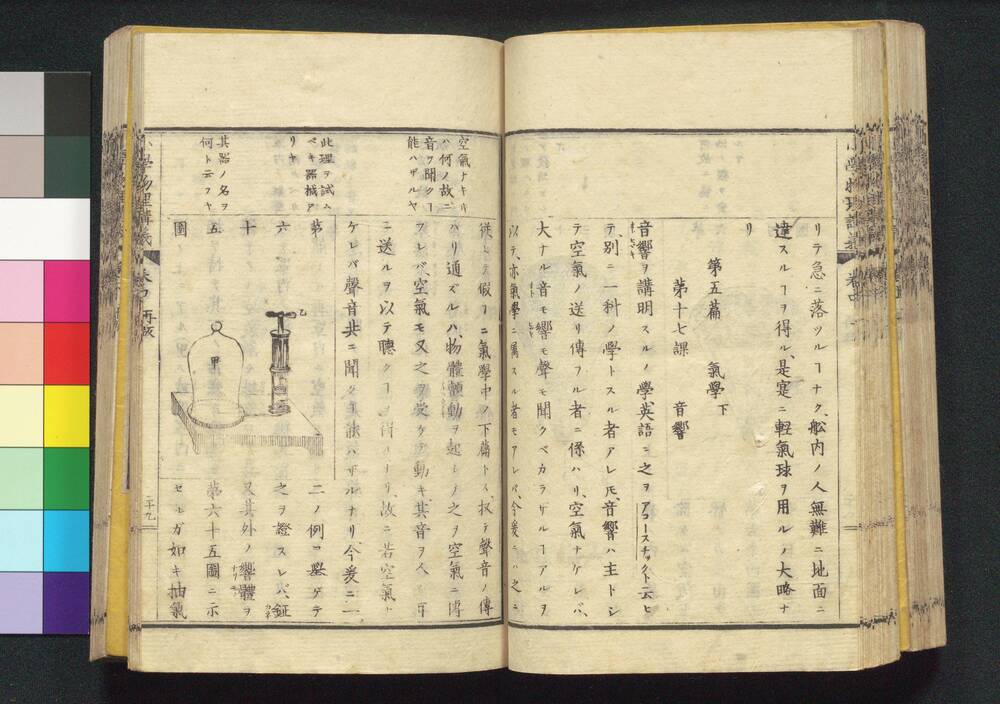 リテ急ニ落ツルヿナク、舩内ノ人無難ニ地面ニ
達スルヿヲ得ル、是寔ニ軽氣球ヲ用ルノ大略ナ
リ
第五篇 氣學 下
第十七課 音響
音響ヲ講明スルノ學英語ニ之ヲアコースチックト云ヒ
テ、別ニ一科ノ学トスル者アレ𪜈、音響ハ主トシ
テ空氣ノ送リ傳フル者ニ係ハリ、空氣ナケレバ、
大ナル音モ響モ聲モ聞クベカラザルヿアルヲ
以テ、亦氣學ニ属スル者モアレバ、今爰ニハ之ニ
従ヒテ假リニ氣學中ノ下篇トス、扨テ聲音ノ傳
ハリ通ズルハ、物體顫動ヲ起シ之ヲ空氣ニ傳
フレバ、空氣モ又之ヲ受ケテ動キ其音ヲ人ノ耳
ニ送ルヲ以テ聽クヿヲ得ルナリ、故ニ若空氣ナ
ケレバ聲音共ニ聞クヿ能ハザルナリ、今爰ニ一
二ノ例ヲ擧ゲテ
之ヲ證スレバ、鉦
又其外ノ響體ヲ
第六十五圖ニ示
セルガ如キ抽氣
第
六
十
五
圖
甲
乙
空氣ナキキ
ハ何ノ故ニ
音ヲ聞クヿ
能ハザルヤ
此理ヲ試ム
ベキ器械ア
リヤ
其器ノ名ヲ
何ト云フヤ
小學物理講義
卷四
再版
二十九